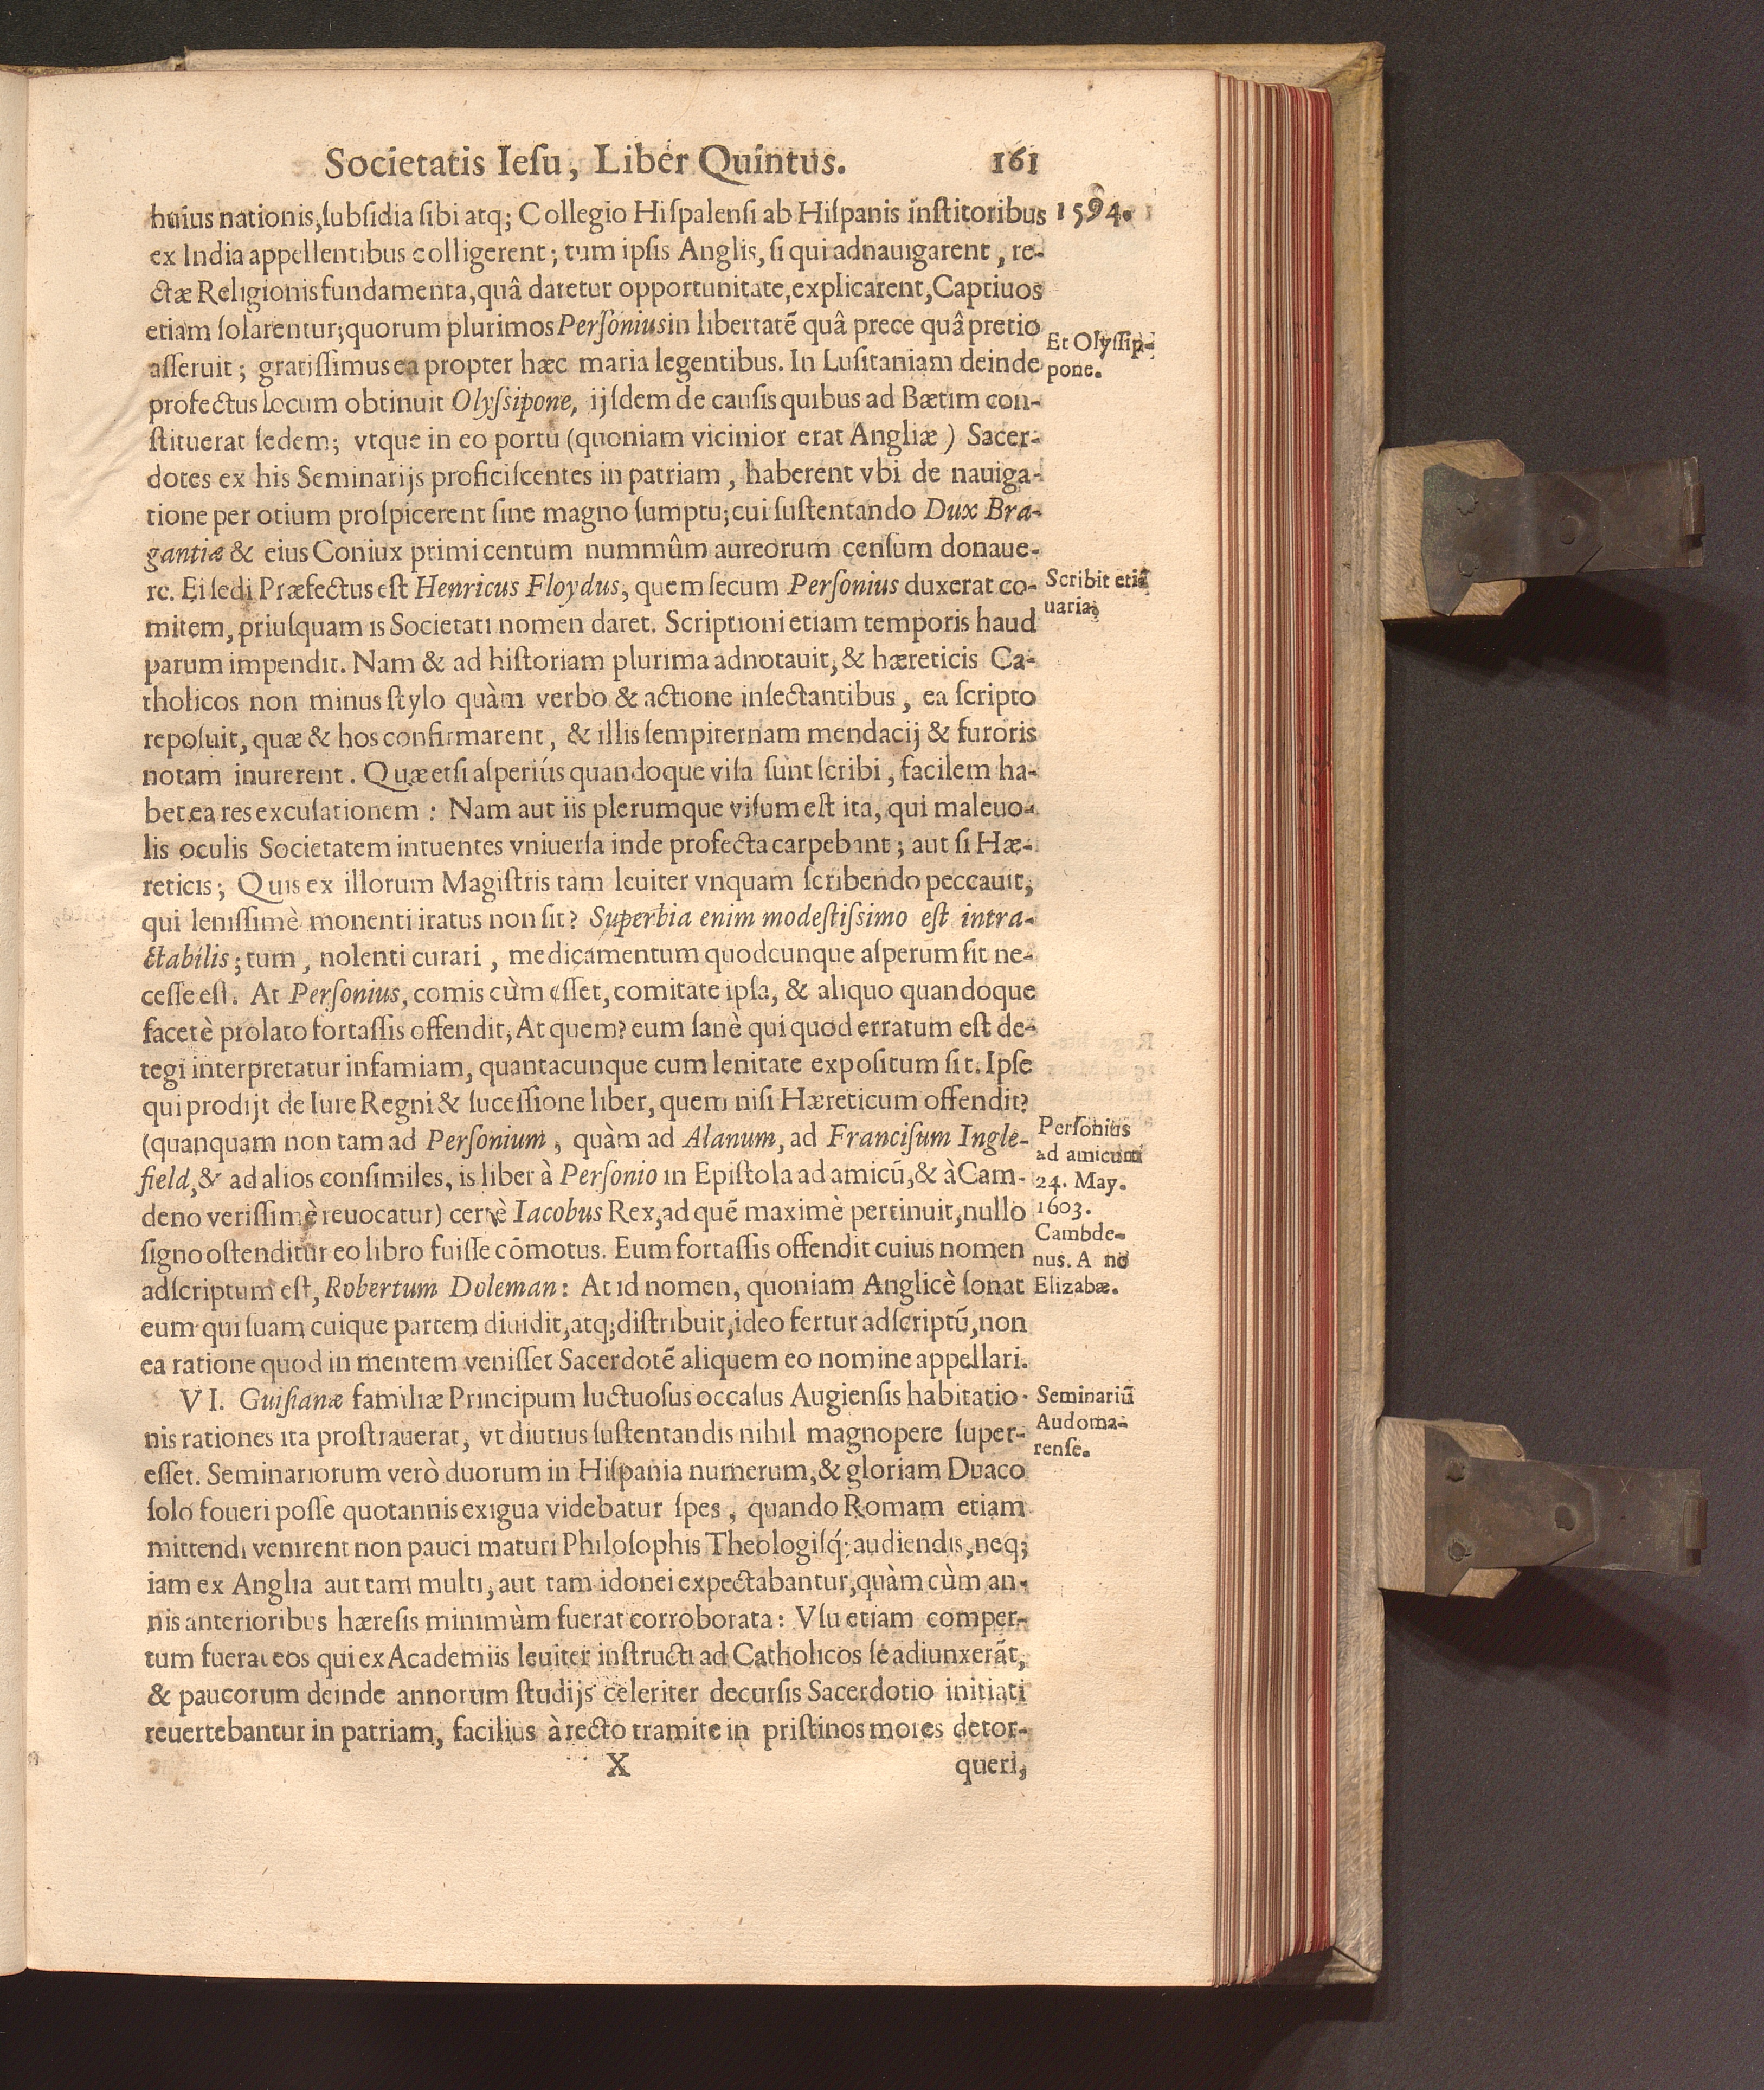 Societatis Ieſu, Liber Quintus. 161
huius nationis, ſubſidia ſibi atq; Collegio Hiſpalenſi ab Hiſpanis inſtitoribus 1594.
ex India appellentibus colligerent; tum ipſis Anglis, ſi qui adnauigarent, re-
ctæ Religionis fundamenta, quâ daretur opportunitate, explicarent, Captiuos
etiam ſolarentur; quorum plurimos Perſonius in libertatē quâ prece quâ pretio
aſſeruit; gratiſſimus ea propter hæc maria legentibus. In Luſitaniam deinde
Et Olyſſip-
pone.
profectus locum obtinuit Olyſsipone, ijſdem de cauſis quibus ad Bætim con-
ſtituerat ſedem; vtque in eo portu (quoniam vicinior erat Angliæ) Sacer-
dotes ex his Seminarijs proficiſcentes in patriam, haberent vbi de nauiga-
tione per otium proſpicerent ſine magno ſumptu; cui ſuſtentando Dux Bra-
gantiæ & eius Coniux primi centum nummûm aureorum cenſum donaue-
re. Ei ſedi Præfectus eſt Henricus Floydus, quem ſecum Perſonius duxerat co-
Scribit etiā
uaria;
mitem, priuſquam is Societati nomen daret. Scriptioni etiam temporis haud
parum impendit. Nam & ad hiſtoriam plurima adnotauit, & hæreticis Ca-
tholicos non minus ſtylo quàm verbo & actione inſectantibus, ea ſcripto
repoſuit, quæ & hos confirmarent, & illis ſempiternam mendacij & furoris
notam inurerent. Quæ etſi aſperiùs quandoque viſa ſunt ſcribi, facilem ha-
bet ea res excuſationem: Nam aut iis plerumque viſum eſt ita, qui maleuo-
lis oculis Societatem intuentes vniuerſa inde profecta carpebant; aut ſi Hæ-
reticis; Quis ex illorum Magiſtris tam leuiter vnquam ſcribendo peccauit,
qui leniſſimè monenti iratus non ſit? Superbia enim modeſtiſsimo eſt intra-
ctabilis; tum, nolenti curari, medicamentum quodcunque aſperum ſit ne-
ceſſe eſt. At Perſonius, comis cùm eſſet, comitate ipſa, & aliquo quandoque
facetè prolato fortaſſis offendit, At quem? eum ſanè qui quod erratum eſt de-
tegi interpretatur infamiam, quantacunque cum lenitate expoſitum ſit. Ipſe
qui prodijt de Iure Regni & ſuceſſione liber, quem niſi Hæreticum offendit?
(quanquam non tam ad Perſonium, quàm ad Alanum, ad Franciſum Ingle-
field, & ad alios conſimiles, is liber à Perſonio in Epiſtola ad amicū, & à Cam-
deno veriſſimè reuocatur) certè Iacobus Rex, ad quē maximè pertinuit, nullo
Perſonius
ad amicum
24. May.
1603.
Cambde-
nus. A no
Elizabæ.
ſigno oſtenditur eo libro fuiſſe cōmotus. Eum fortaſſis offendit cuius nomen
adſcriptum eſt, Robertum Doleman: At id nomen, quoniam Anglicè ſonat
eum qui ſuam cuique partem diuidit, atq; diſtribuit, ideo fertur adſcriptū, non
ea ratione quod in mentem veniſſet Sacerdotē aliquem eo nomine appellari.
VI. Guiſianæ familiæ Principum luctuoſus occaſus Augienſis habitatio-
Seminariū
Audoma-
renſe.
nis rationes ita proſtrauerat, vt diutius ſuſtentandis nihil magnopere ſuper-
eſſet. Seminariorum verò duorum in Hiſpania numerum, & gloriam Duaco
ſolo foueri poſſe quotannis exigua videbatur ſpes, quando Romam etiam
mittendi venirent non pauci maturi Philoſophis Theologiſq́; audiendis, neq;
iam ex Anglia aut tam multi, aut tam idonei expectabantur, quàm cùm an-
nis anterioribus hæreſis minimùm fuerat corroborata: Vſu etiam comper-
tum fuerat eos qui ex Academiis leuiter inſtructi ad Catholicos ſe adiunxerāt,
& paucorum deinde annorum ſtudijs celeriter decurſis Sacerdotio initiati
reuertebantur in patriam, facilius à recto tramite in priſtinos mores detor-
X queri,